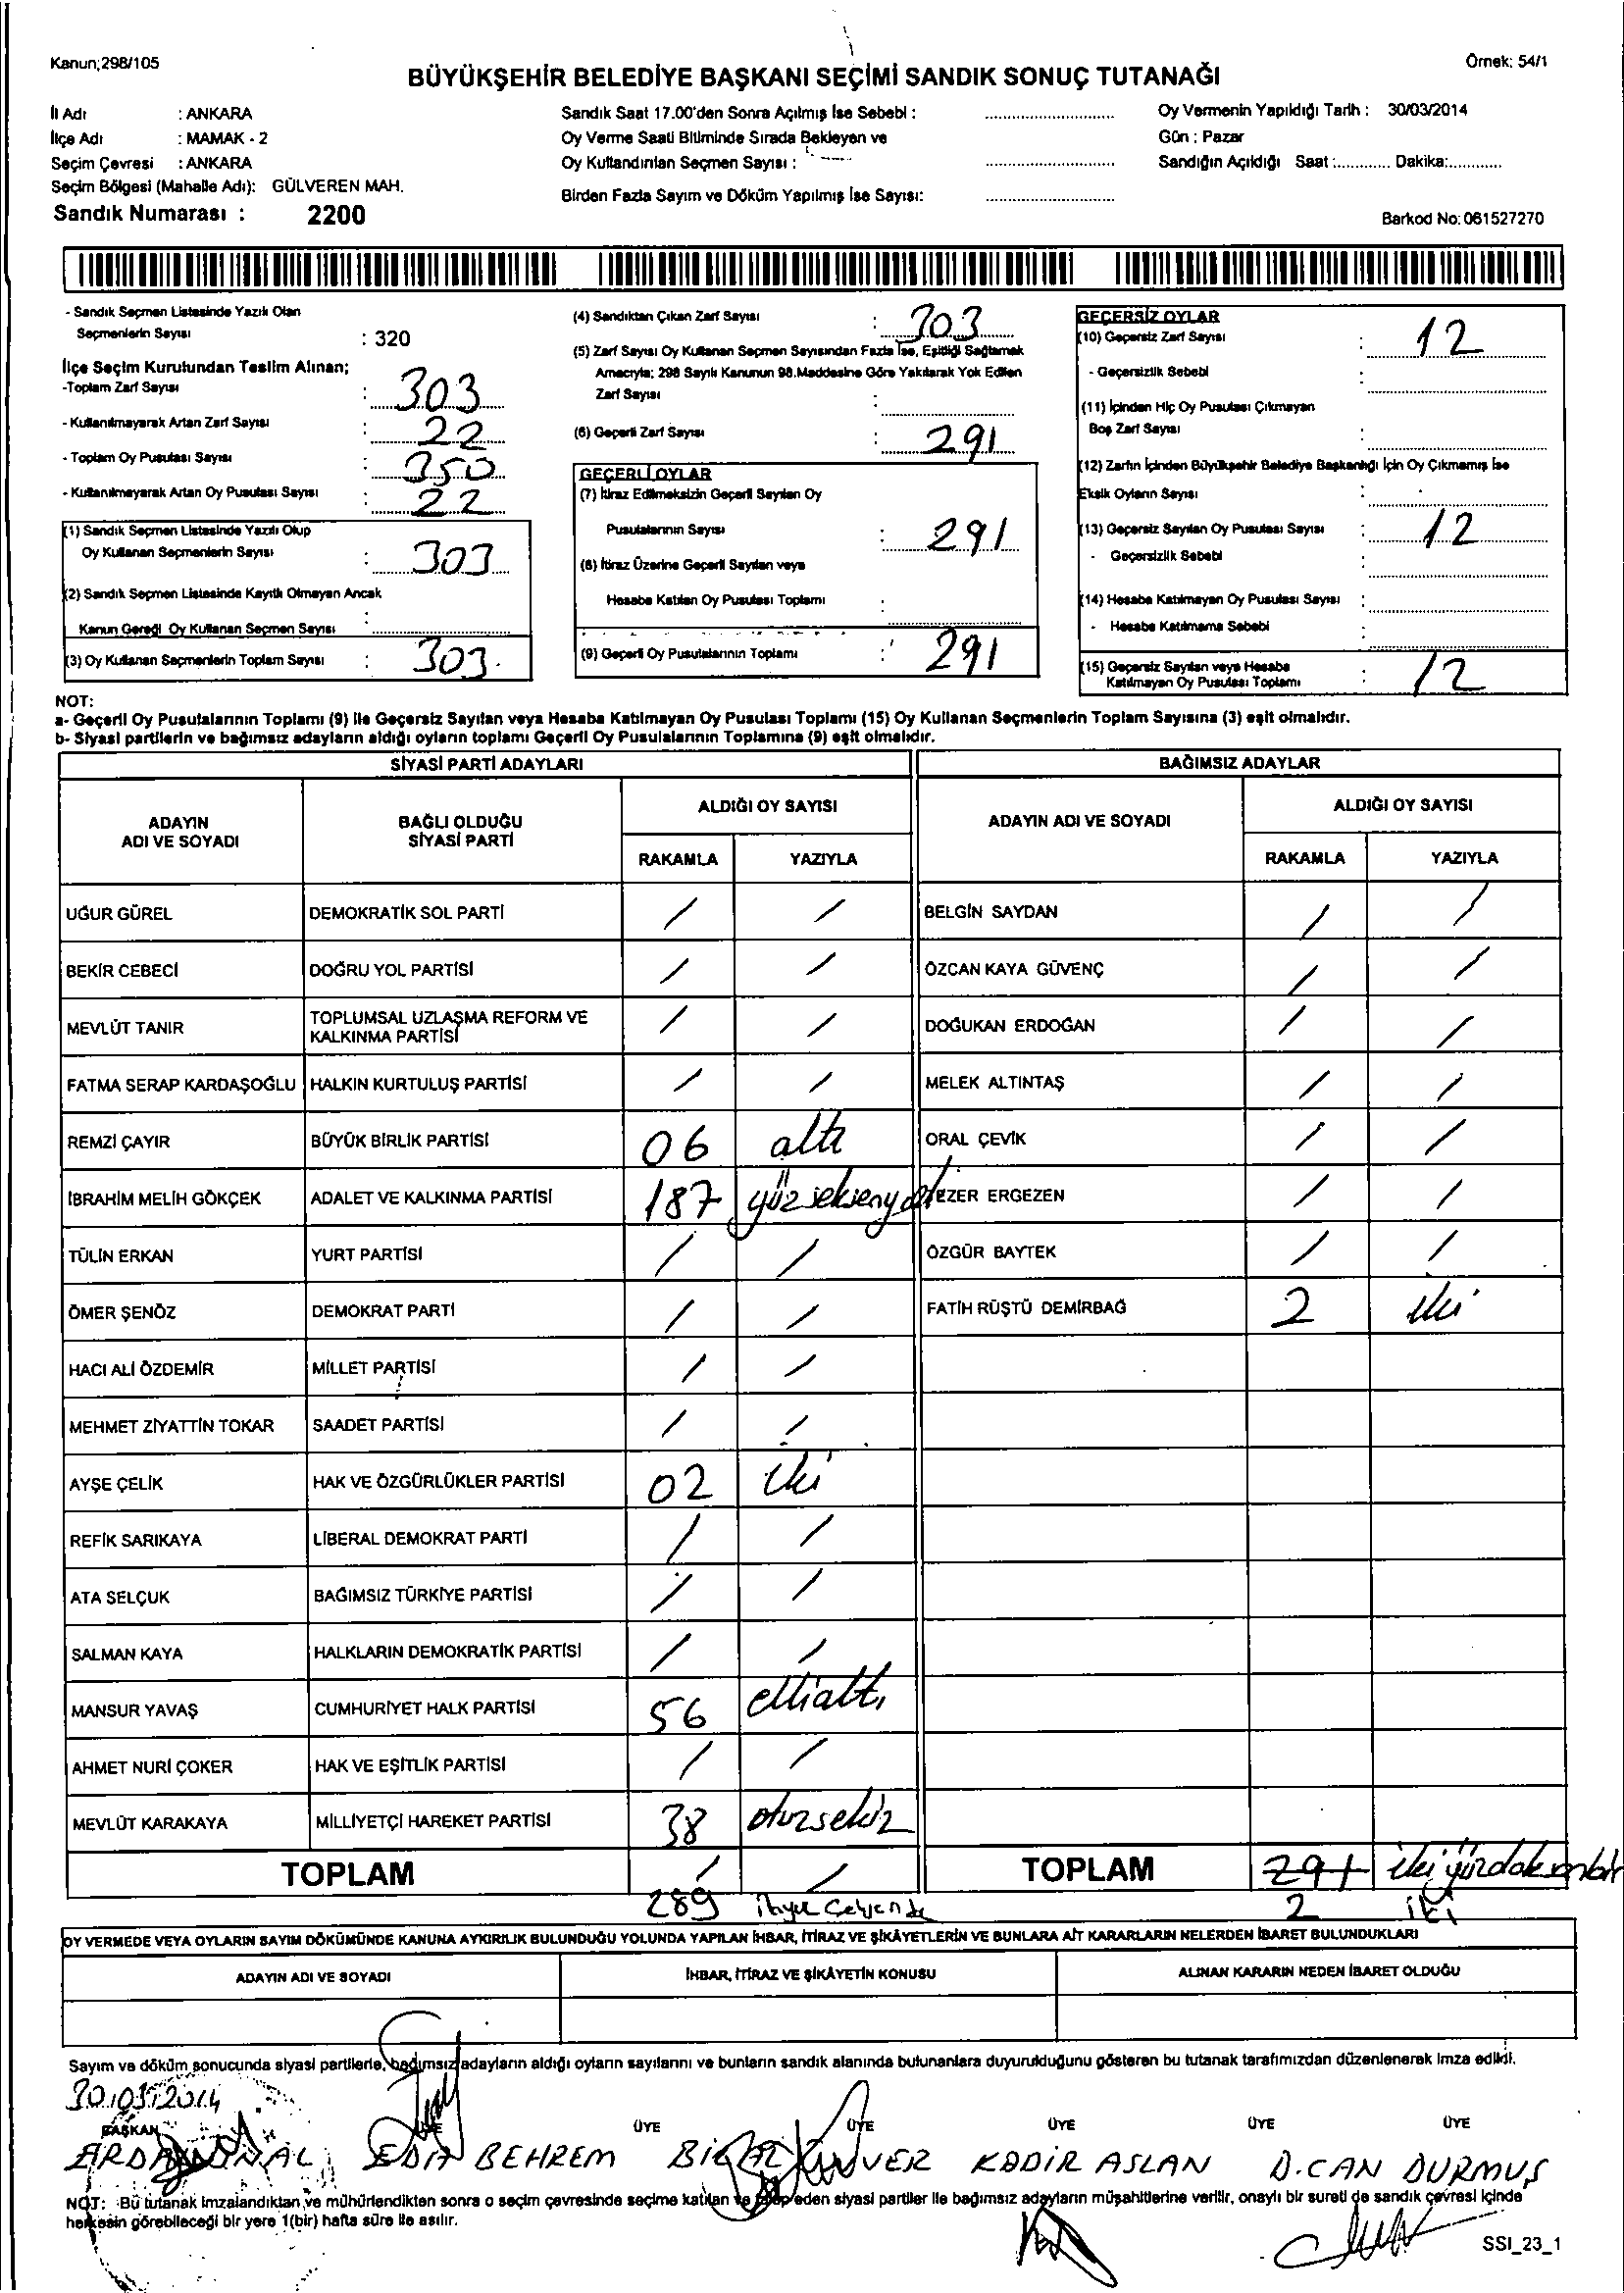 Kanun;298/105
Örnek: 54/1
BÜYÜKŞEHİR BELEDİYE BAŞKANI SEÇİMİ SANDIK SONUÇ TUTANAĞI
İl Adı : ANKARA
İlçe Adı : MAMAK - 2
Seçim Çevresi : ANKARA
Seçim Bölgesi (Mahalle Adı): GÜLVEREN MAH.
Sandık Numarası : 2200
Sandık Saat 17.00'den Sonra Açılmış İse Sebebi :
Oy Verme Saati Bitiminde Sırada Bekleyen ve
Oy Kullandırılan Seçmen Sayısı :
Birden Fazla Sayım ve Döküm Yapılmış İse Sayısı:
Oy Vermenin Yapıldığı Tarih : 30/03/2014
Gün : Pazar
Sandığın Açıldığı Saat :............ Dakika:............
Barkod No: 061527270
- Sandık Seçmen Listesinde Yazılı Olan
Seçmenlerin Sayısı : 320
İlçe Seçim Kurulundan Teslim Alınan;
-Toplam Zarf Sayısı : 303
- Kullanılmayarak Artan Zarf Sayısı : 22
- Toplam Oy Pusulası Sayısı : 350
- Kullanılmayarak Artan Oy Pusulası Sayısı : 22
(1) Sandık Seçmen Listesinde Yazılı Olup
Oy Kullanan Seçmenlerin Sayısı : 303
(2) Sandık Seçmen Listesinde Kayıtlı Olmayan Ancak
Kanun Gereği Oy Kullanan Seçmen Sayısı :
(3) Oy Kullanan Seçmenlerin Toplam Sayısı : 303
(4) Sandıktan Çıkan Zarf Sayısı : 303
(5) Zarf Sayısı Oy Kullanan Seçmen Sayısından Fazla İse, Eşitliği Sağlamak
Amacıyla; 298 Sayılı Kanunun 98.Maddesine Göre Yakılarak Yok Edilen
Zarf Sayısı :
(6) Geçerli Zarf Sayısı : 291
GEÇERLİ OYLAR
(7) İtiraz Edilmeksizin Geçerli Sayılan Oy
Pusulalarının Sayısı : 291
(8) İtiraz Üzerine Geçerli Sayılan veya
Hesaba Katılan Oy Pusulası Toplamı :
(9) Geçerli Oy Pusulalarının Toplamı : 291
GEÇERSİZ OYLAR
(10) Geçersiz Zarf Sayısı : 12
- Geçersizlik Sebebi :
(11) İçinden Hiç Oy Pusulası Çıkmayan
Boş Zarf Sayısı :
(12) Zarfın İçinden Büyükşehir Belediye Başkanlığı İçin Oy Çıkmamış İse
Eksik Oyların Sayısı :
(13) Geçersiz Sayılan Oy Pusulası Sayısı : 12
- Geçersizlik Sebebi :
(14) Hesaba Katılmayan Oy Pusulası Sayısı :
- Hesaba Katılmama Sebebi :
(15) Geçersiz Sayılan veya Hesaba
Katılmayan Oy Pusulası Toplamı : 12
NOT:
a- Geçerli Oy Pusulalarının Toplamı (9) ile Geçersiz Sayılan veya Hesaba Katılmayan Oy Pusulası Toplamı (15) Oy Kullanan Seçmenlerin Toplam Sayısına (3) eşit olmalıdır.
b- Siyasi partilerin ve bağımsız adayların aldığı oyların toplamı Geçerli Oy Pusulalarının Toplamına (9) eşit olmalıdır.
SİYASİ PARTİ ADAYLARI
ADAYIN ADI VE SOYADI BAĞLI OLDUĞU SİYASİ PARTİ ALDIĞI OY SAYISI
RAKAMLA YAZIYLA
UĞUR GÜREL DEMOKRATİK SOL PARTİ / /
BEKİR CEBECİ DOĞRU YOL PARTİSİ / /
MEVLÜT TANIR TOPLUMSAL UZLAŞMA REFORM VE KALKINMA PARTİSİ / /
FATMA SERAP KARDAŞOĞLU HALKIN KURTULUŞ PARTİSİ / /
REMZİ ÇAYIR BÜYÜK BİRLİK PARTİSİ 06 altı
İBRAHİM MELİH GÖKÇEK ADALET VE KALKINMA PARTİSİ 187 yüzseksenyedi
TÜLİN ERKAN YURT PARTİSİ / /
ÖMER ŞENÖZ DEMOKRAT PARTİ / /
HACI ALİ ÖZDEMİR MİLLET PARTİSİ / /
MEHMET ZİYATTİN TOKAR SAADET PARTİSİ / /
AYŞE ÇELİK HAK VE ÖZGÜRLÜKLER PARTİSİ 02 iki
REFİK SARIKAYA LİBERAL DEMOKRAT PARTİ / /
ATA SELÇUK BAĞIMSIZ TÜRKİYE PARTİSİ / /
SALMAN KAYA HALKLARIN DEMOKRATİK PARTİSİ / /
MANSUR YAVAŞ CUMHURİYET HALK PARTİSİ 56 ellialtı
AHMET NURİ ÇOKER HAK VE EŞİTLİK PARTİSİ / /
MEVLÜT KARAKAYA MİLLİYETÇİ HAREKET PARTİSİ 38 otuzsekiz
TOPLAM / /
289
BAĞIMSIZ ADAYLAR
ADAYIN ADI VE SOYADI ALDIĞI OY SAYISI
RAKAMLA YAZIYLA
BELGİN SAYDAN / /
ÖZCAN KAYA GÜVENÇ / /
DOĞUKAN ERDOĞAN / /
MELEK ALTINTAŞ / /
ORAL ÇEVİK / /
EZER ERGEZEN / /
ÖZGÜR BAYTEK / /
FATİH RÜŞTÜ DEMİRBAĞ 2 iki
TOPLAM 291 ikiyüzdoksanbir
2 iki
OY VERMEDE VEYA OYLARIN SAYIM DÖKÜMÜNDE KANUNA AYKIRILIK BULUNDUĞU YOLUNDA YAPILAN İHBAR, İTİRAZ VE ŞİKÂYETLERİN VE BUNLARA AİT KARARLARIN NELERDEN İBARET BULUNDUKLARI
ADAYIN ADI VE SOYADI İHBAR, İTİRAZ VE ŞİKÂYETİN KONUSU ALINAN KARARIN NEDEN İBARET OLDUĞU
Sayım ve döküm sonucunda siyasi partilerle, bağımsız adayların aldığı oyların sayılarını ve bunların sandık alanında bulunanlara duyurulduğunu gösteren bu tutanak tarafımızdan düzenlenerek imza edildi.
30.03.2014
BAŞKAN ÜYE ÜYE ÜYE ÜYE ÜYE ÜYE
BEHREM KADİR ASLAN D.CAN DURMUŞ
NOT: Bu tutanak imzalandıktan ve mühürlendikten sonra o seçim çevresinde seçime katılan ve talep eden siyasi partiler ile bağımsız adayların müşahitlerine verilir, onaylı bir sureti de sandık çevresi içinde
herkesin görebileceği bir yere 1(bir) hafta süre ile asılır.
SSI_23_1